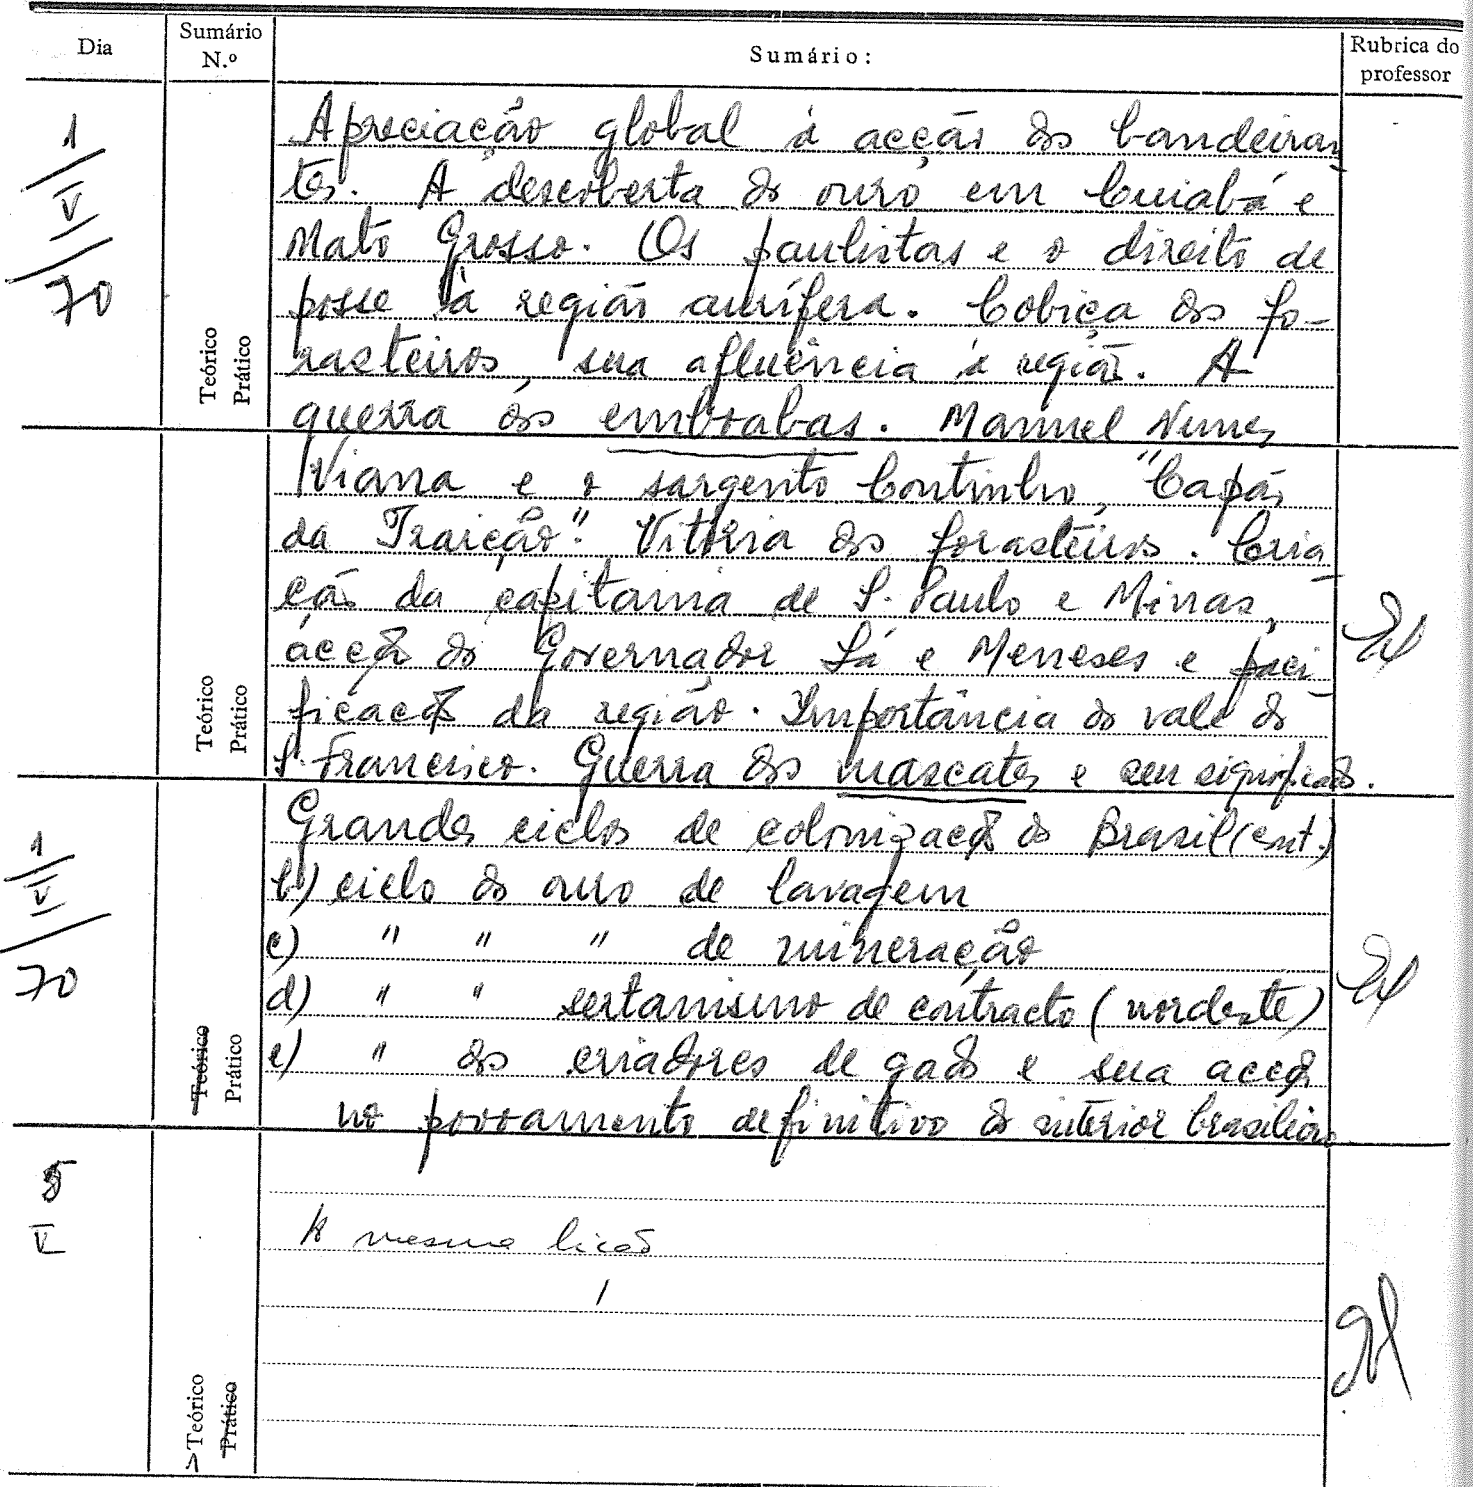 Dia
Sumário N.º
Sumário:
Rubrica do professor
1/V/70
Apreciação global à acção dos bandeiran-
tes. A descoberta do ouro em Cuiabá e
Mato Grosso. Os paulistas e o direito de
posse à região aurífera. Cobiça dos fo-
rasteiros, sua afluência à região. A
guerra dos emboabas. Manuel Nunes
Teórico
Prático
Viana e o sargento Coutinho, "Capão
da Traição". Vitória dos forasteiros. Cria-
ção da capitania de S. Paulo e Minas,
acção do Governador Sá e Meneses e paci-
ficação da região. Importância do vale do
S. Francisco. Guerra dos mascates e seu significado.
Teórico
Prático
1/V/70
Grandes ciclos de colonização do Brasil (cont.)
b) ciclo do ouro de lavagem
c) " " " de mineração
d) " " sertanismo de contracto (nordeste)
e) " dos criadores de gado e sua acção
no povoamento definitivo do interior brasileiro
Teórico
Prático
5
V
A mesma lição
Teórico
Prático